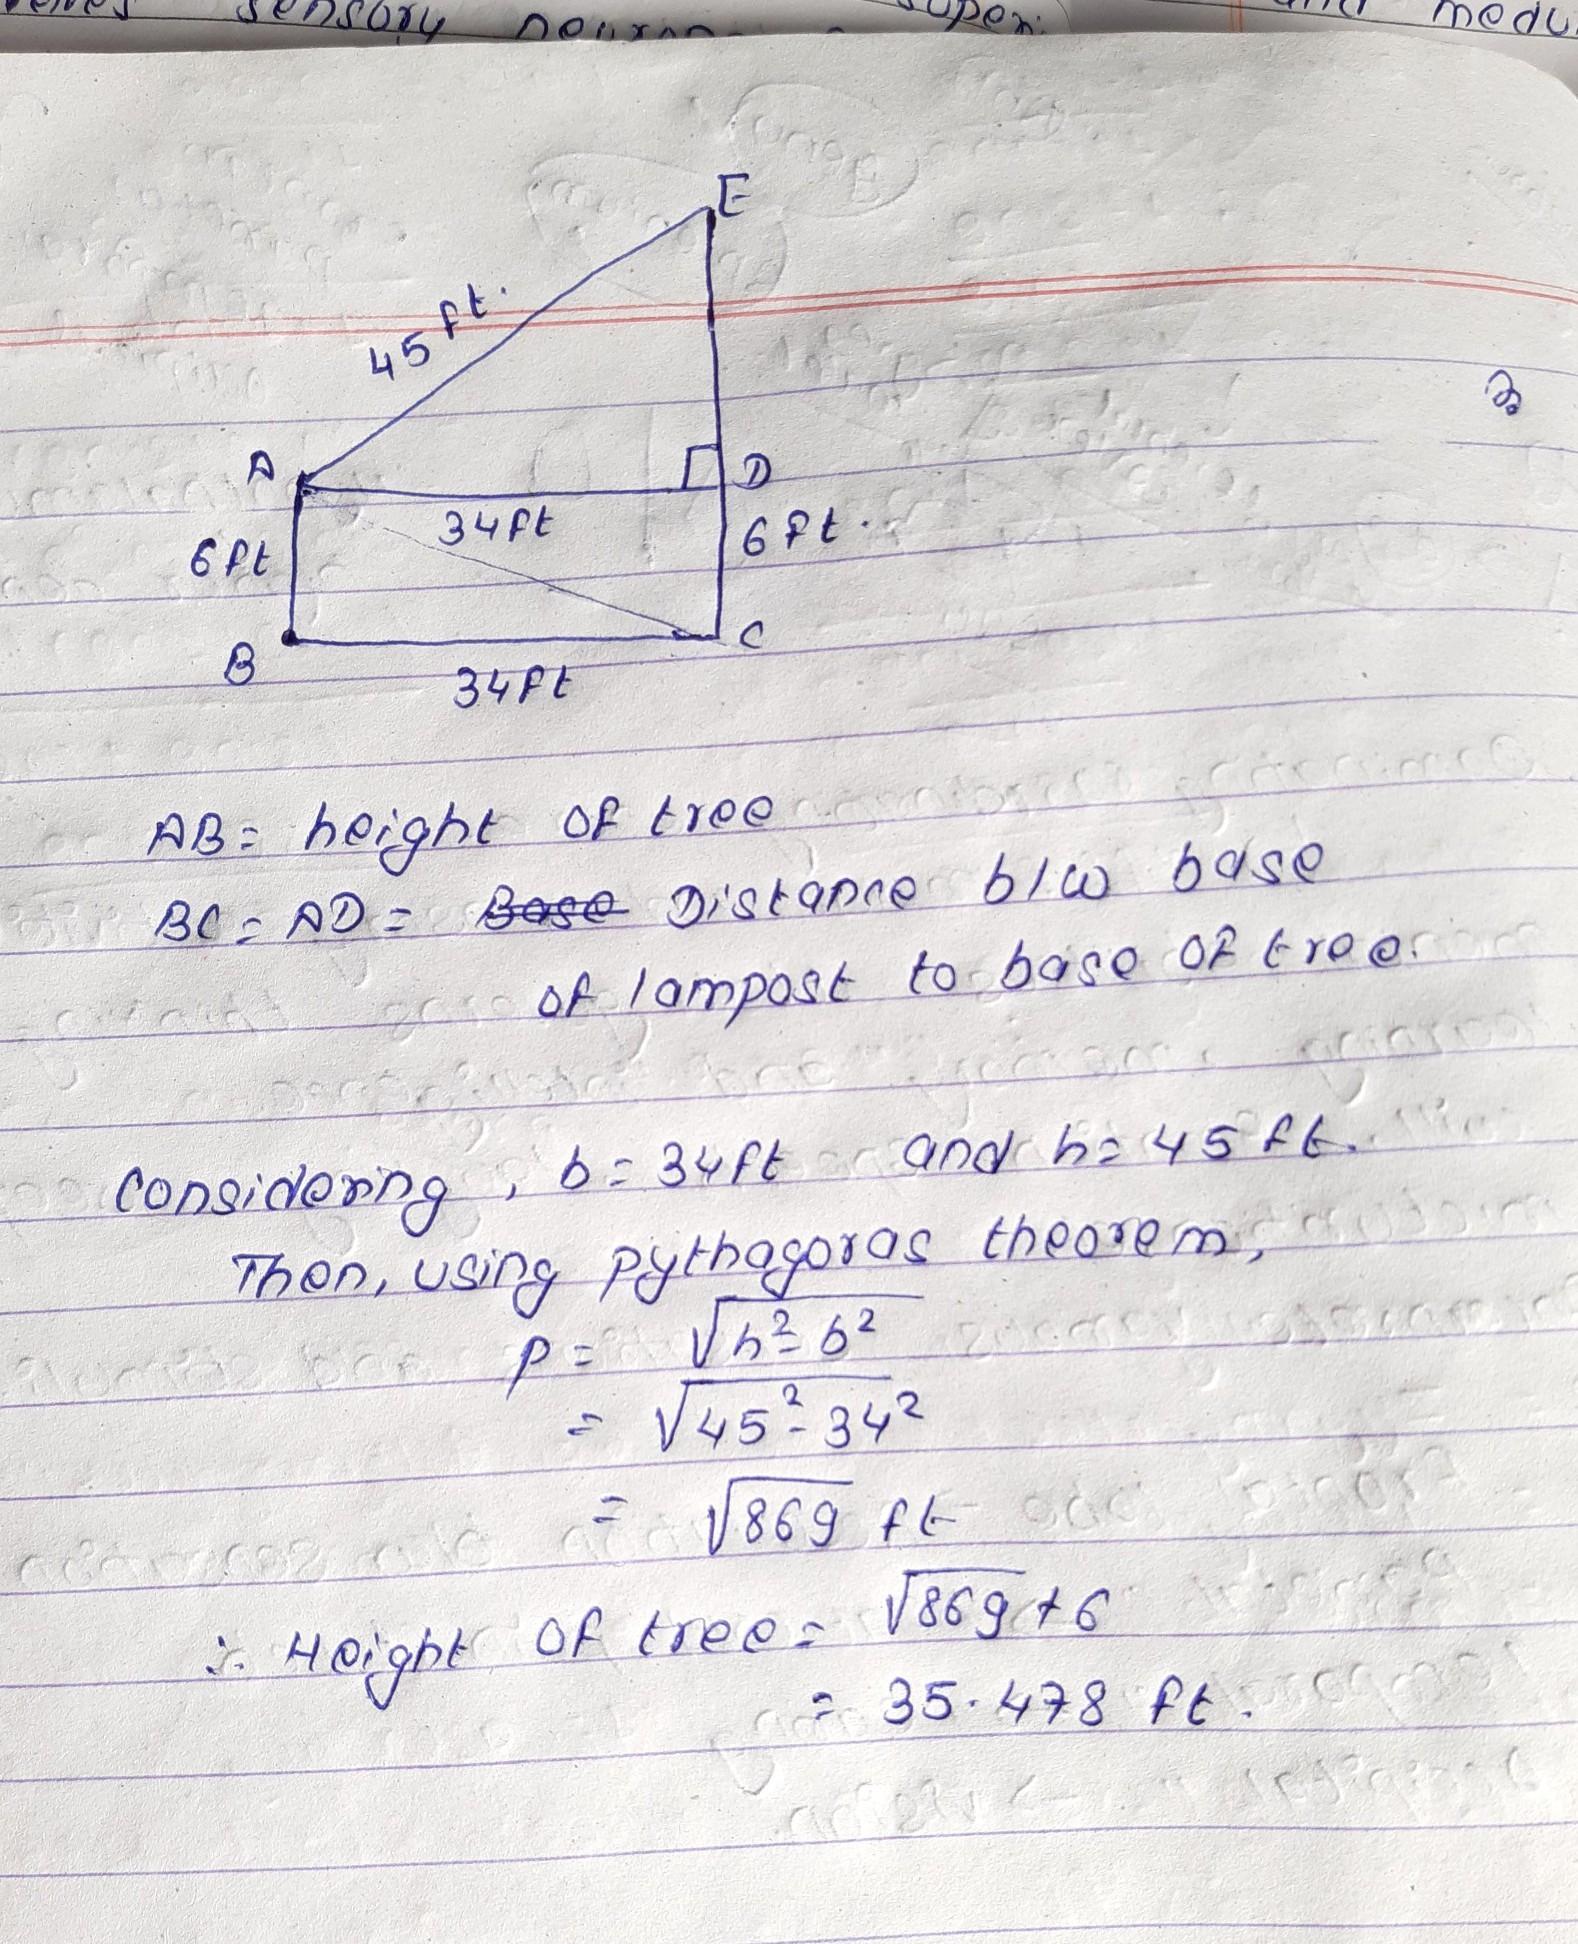 sensory neuron
super
medu
E
45 ft.
A
D
34ft
6ft
6ft.
B
C
34ft
AB = height of tree
BC = AD = Base Distance b/w base
of lampost to base of tree.
Considering, b = 34ft and h = 45 ft.
Then, using pythagoras theorem,
p = √h² - b²
= √45² - 34²
= √869 ft
∴ Height of tree = √869 + 6
= 35.478 ft.